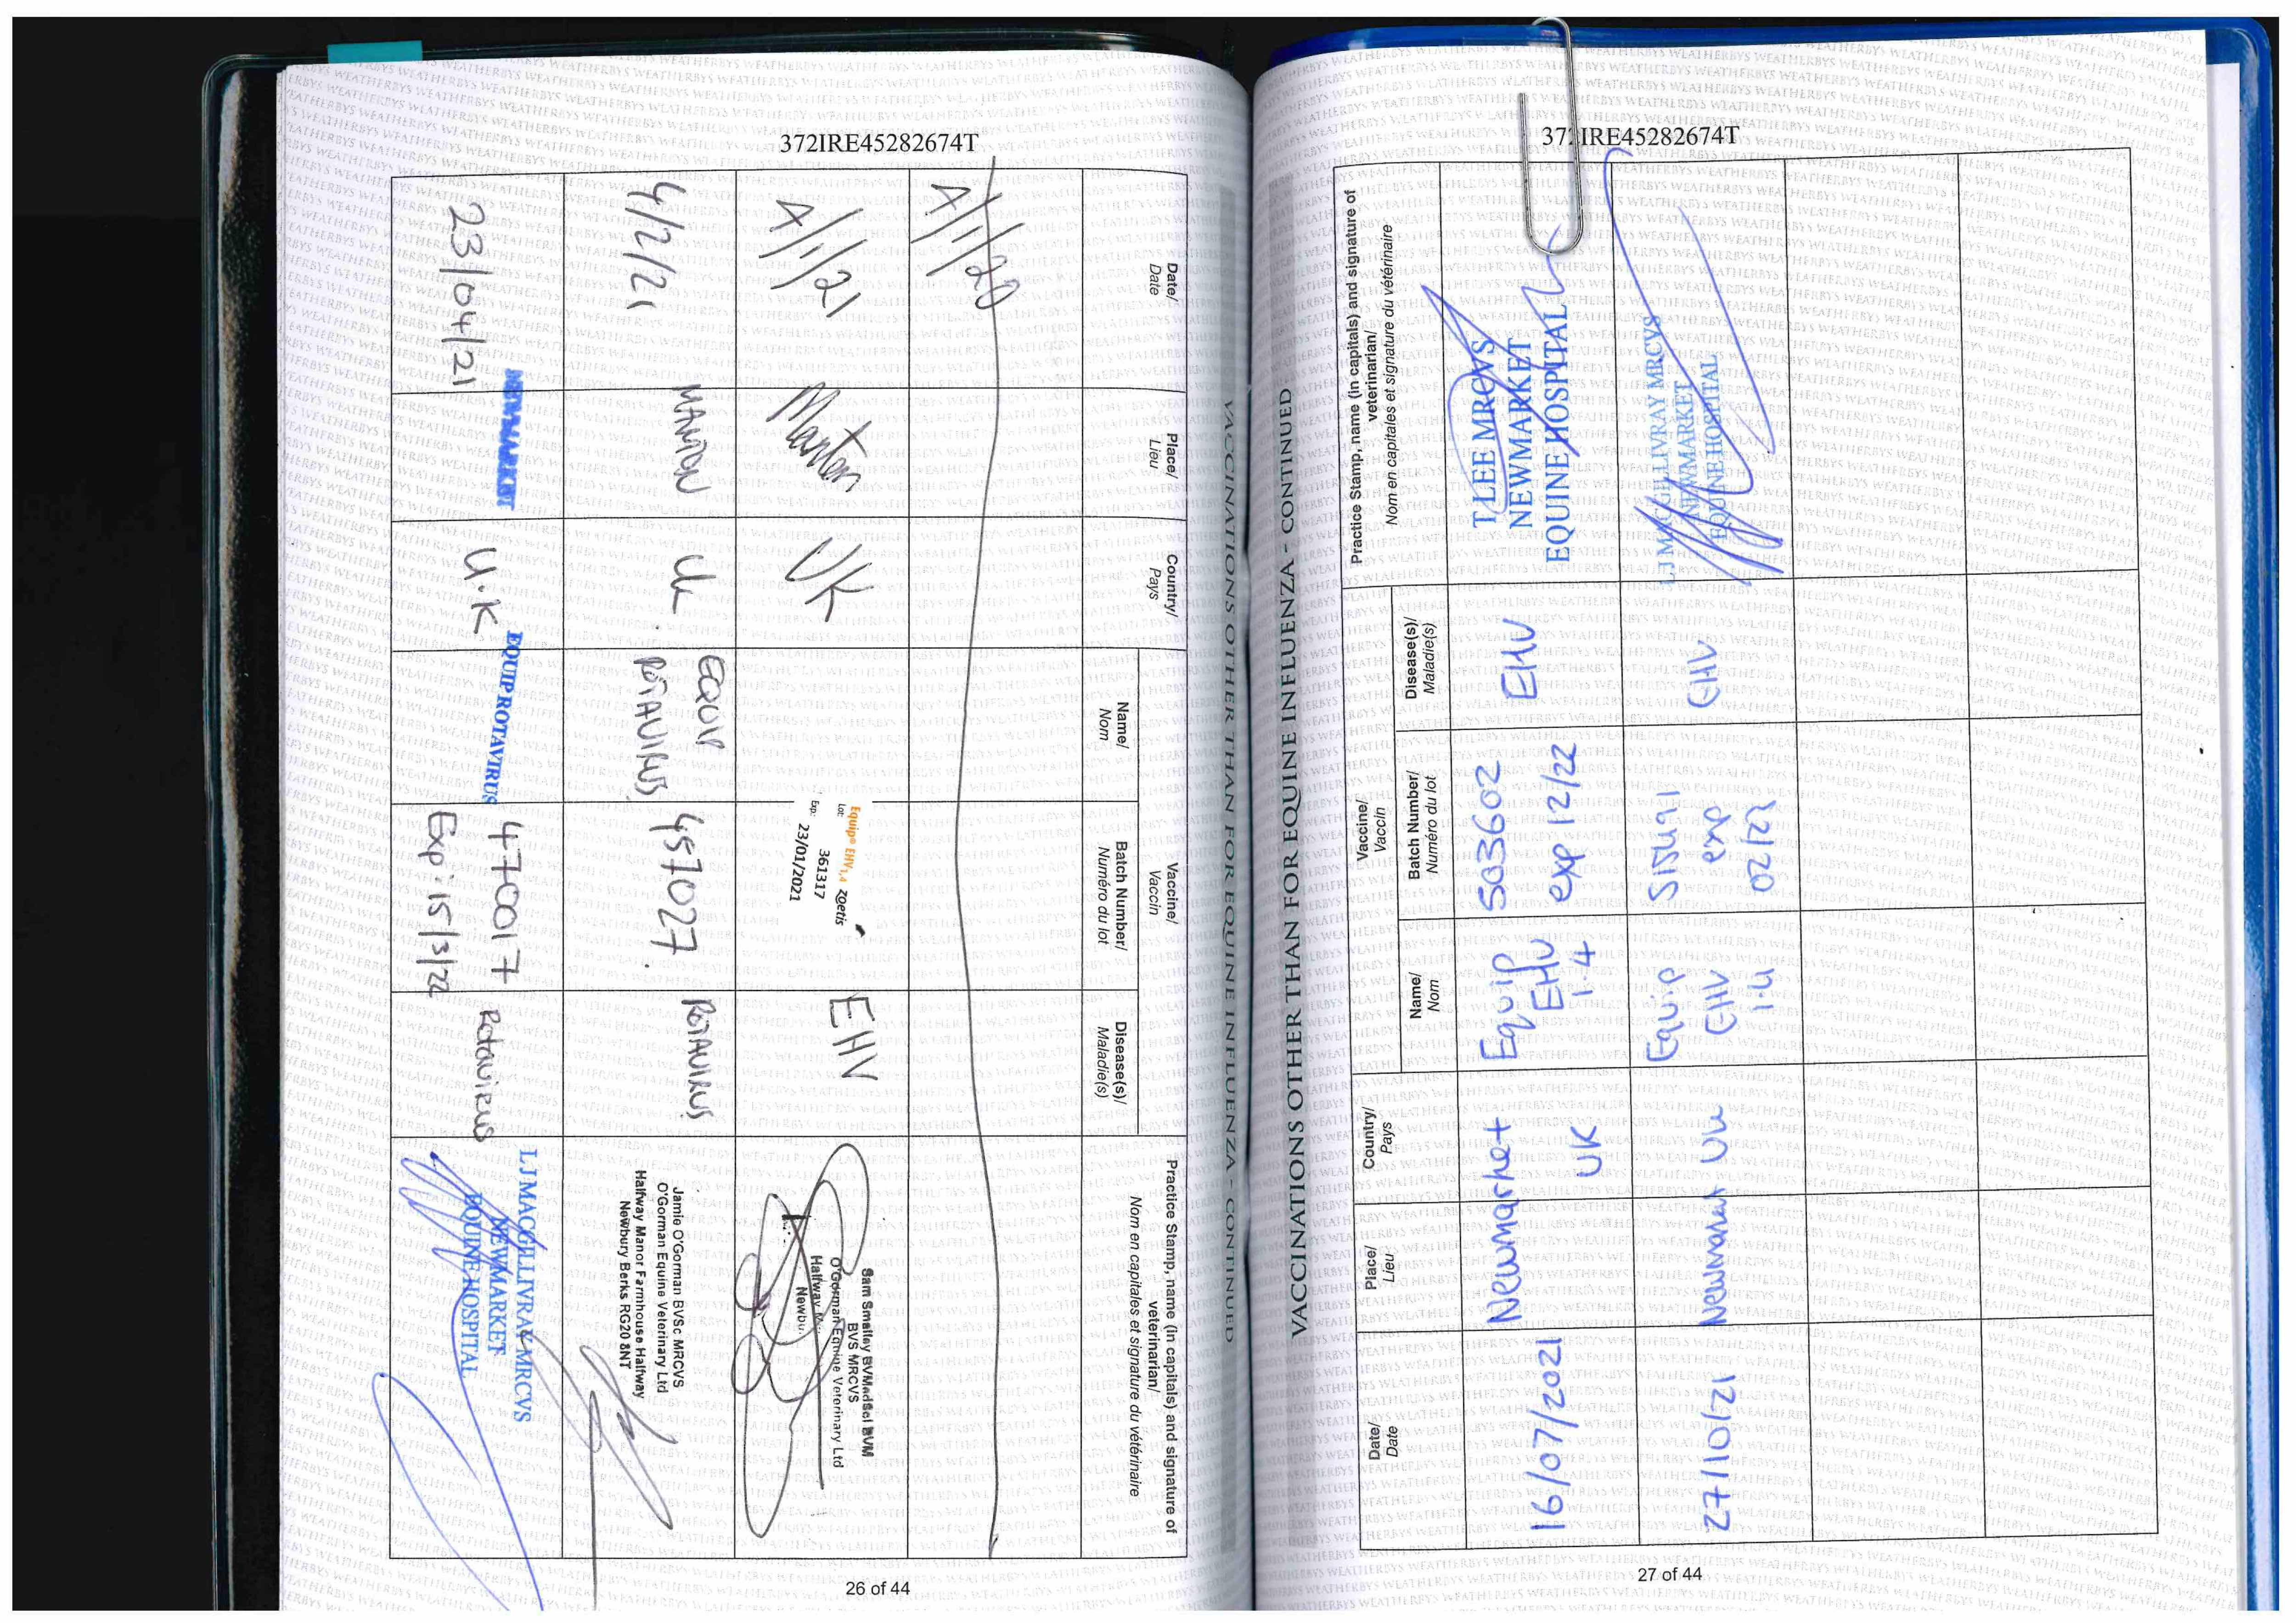 372IRE45282674T
VACCINATIONS OTHER THAN FOR EQUINE INFLUENZA - CONTINUED
Date/
Date
Place/
Lieu
Country/
Pays
Vaccine/
Vaccin
Name/
Nom
Batch Number/
Numéro du lot
Disease(s)/
Maladie(s)
Practice Stamp, name (in capitals) and signature of
veterinarian/
Nom en capitales et signature du vétérinaire
1/1/21
Manton
UK
Equip® EHV1,4 zoetis
Lot: 361317
Exp: 23/01/2021
EHV
Sam Smalley
BVS MRCVS
O'Gorman Equine Veterinary Ltd
Halfway
Newbu
4/2/21
MANTON
UK.
EQUIP
ROTAVIRUS
457027.
ROTAVIRUS
Jamie O'Gorman BVSc MRCVS
O'Gorman Equine Veterinary Ltd
Halfway Manor Farmhouse Halfway
Newbury Berks RG20 8NT
23/04/21
NEWMARKET
U.K
EQUIP ROTAVIRUS
470017
Exp: 15/3/22
Rotavirus
L J MACGILLIVRAY MRCVS
NEWMARKET
EQUINE HOSPITAL
26 of 44
372IRE45282674T
VACCINATIONS OTHER THAN FOR EQUINE INFLUENZA - CONTINUED
Date/
Date
Place/
Lieu
Country/
Pays
Vaccine/
Vaccin
Name/
Nom
Batch Number/
Numéro du lot
Disease(s)/
Maladie(s)
Practice Stamp, name (in capitals) and signature of
veterinarian/
Nom en capitales et signature du vétérinaire
16/07/2021
Newmarket
UK
Equip
EHV
1.4
5036602
exp 12/22
EHV
T LEE MRCVS
NEWMARKET
EQUINE HOSPITAL
27/10/21
UK
Equip
EHV
1.4
exp
EHV
L J MACGILLIVRAY MRCVS
NEWMARKET
EQUINE HOSPITAL
27 of 44